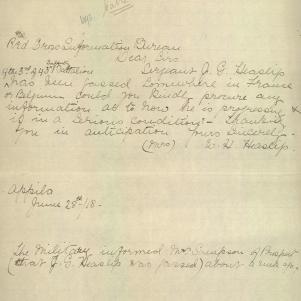 Red Cross Information Bureau
Dear Sirs
Sergeant J. G. Heaslip
has been gassed somewhere in France
or Belgium could you kindly procure any
information as to how he is progressing &
if in a serious condition – Thanking
you in anticipation yours sincerely
(Mrs) E. H. Heaslip.
Appila
June 28th/18 -
The Military informed Mr Simpson of Prospect
(that J. G. Heaslip was gassed) about a week ago.